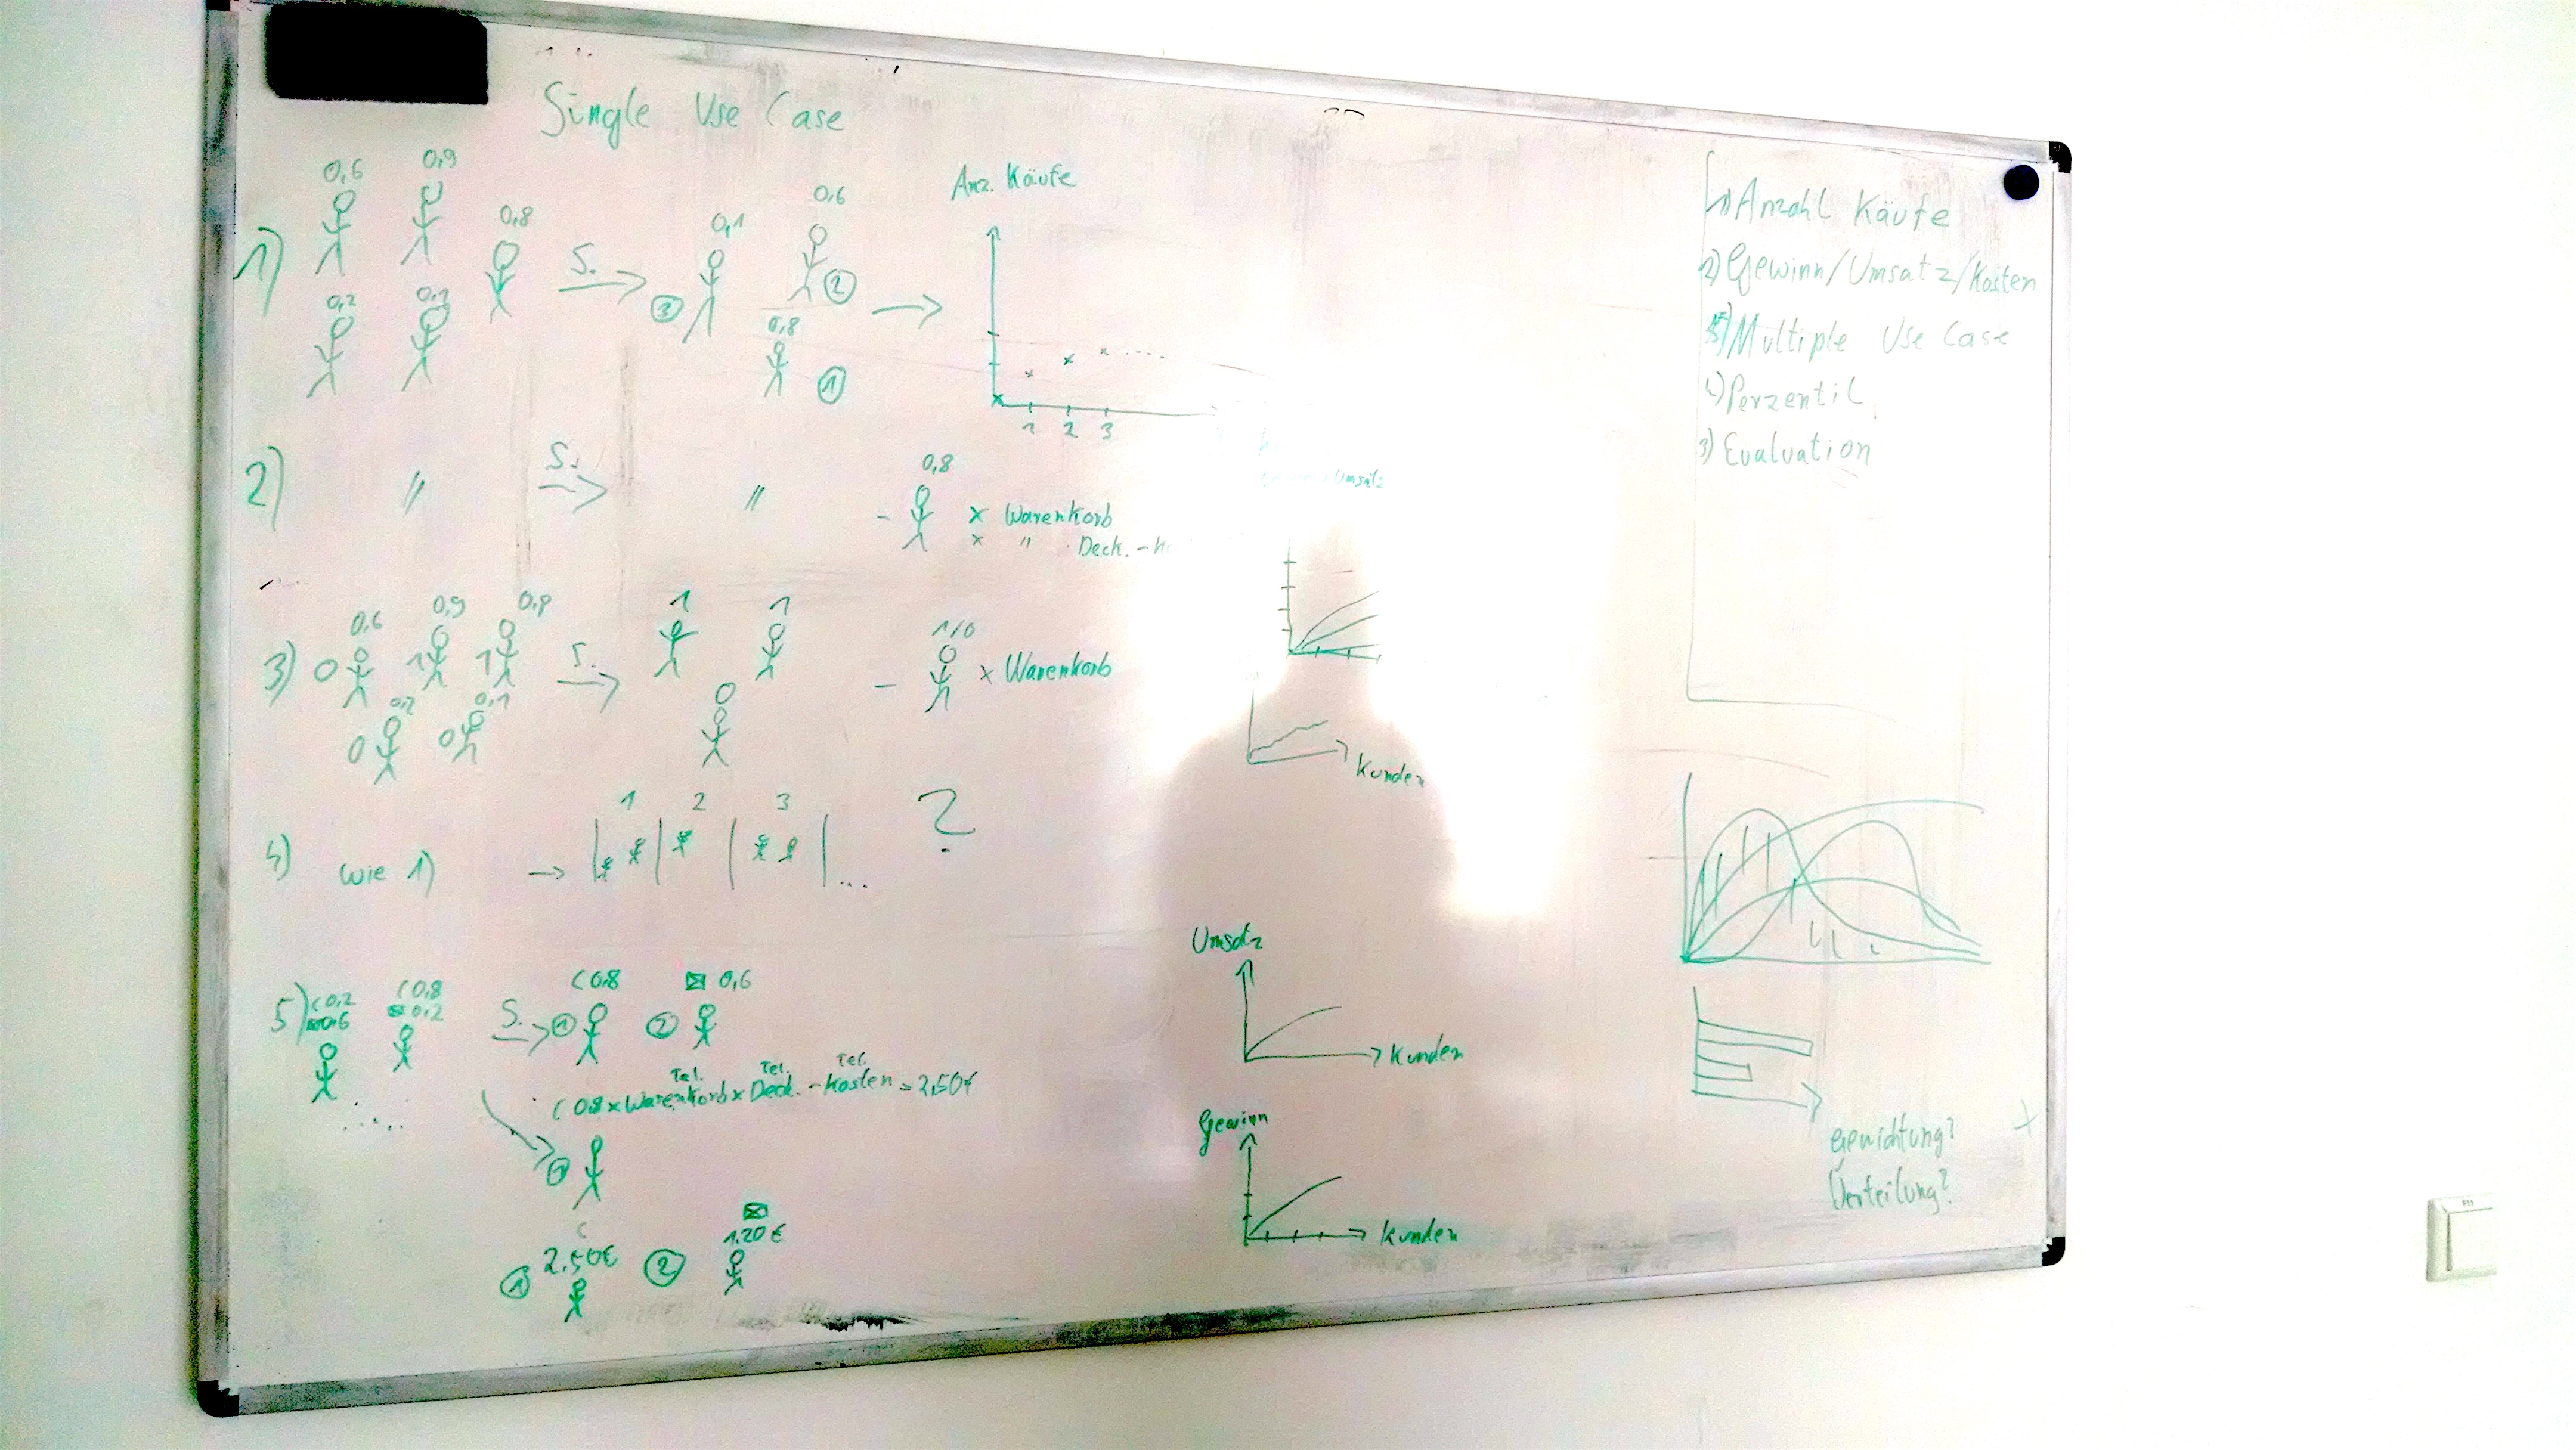 Single Use Case
1)
0,6
0,9
0,8
0,2
0,1
S.
0,1
0,6
0,8
3
2
1
Anz. Käufe
1 2 3
2)
"
S.
"
0,8
- x Warenkorb
x " · Deck. - K
Umsatz
3)
0,6
0,9
0,8
0
1
1
0,2
0,1
0
0
S.
1
1
0
1/0
- x Warenkorb
Kunden
4) wie 1)
1 2 3
...
?
5)
0,2
0,6
0,8
0,2
S.
1 0,8
2 0,6
Tel. Tel. Tel.
0,8 x Warenkorb x Deck. - Kosten = 2,50€
1
1 2,50€
2 1.20€
Umsatz
Kunden
Gewinn
Kunden
1) Anzahl Käufe
2) Gewinn/Umsatz/Kosten
5) Multiple Use Case
4) Perzentil
3) Evaluation
Gewichtung?
Verteilung?